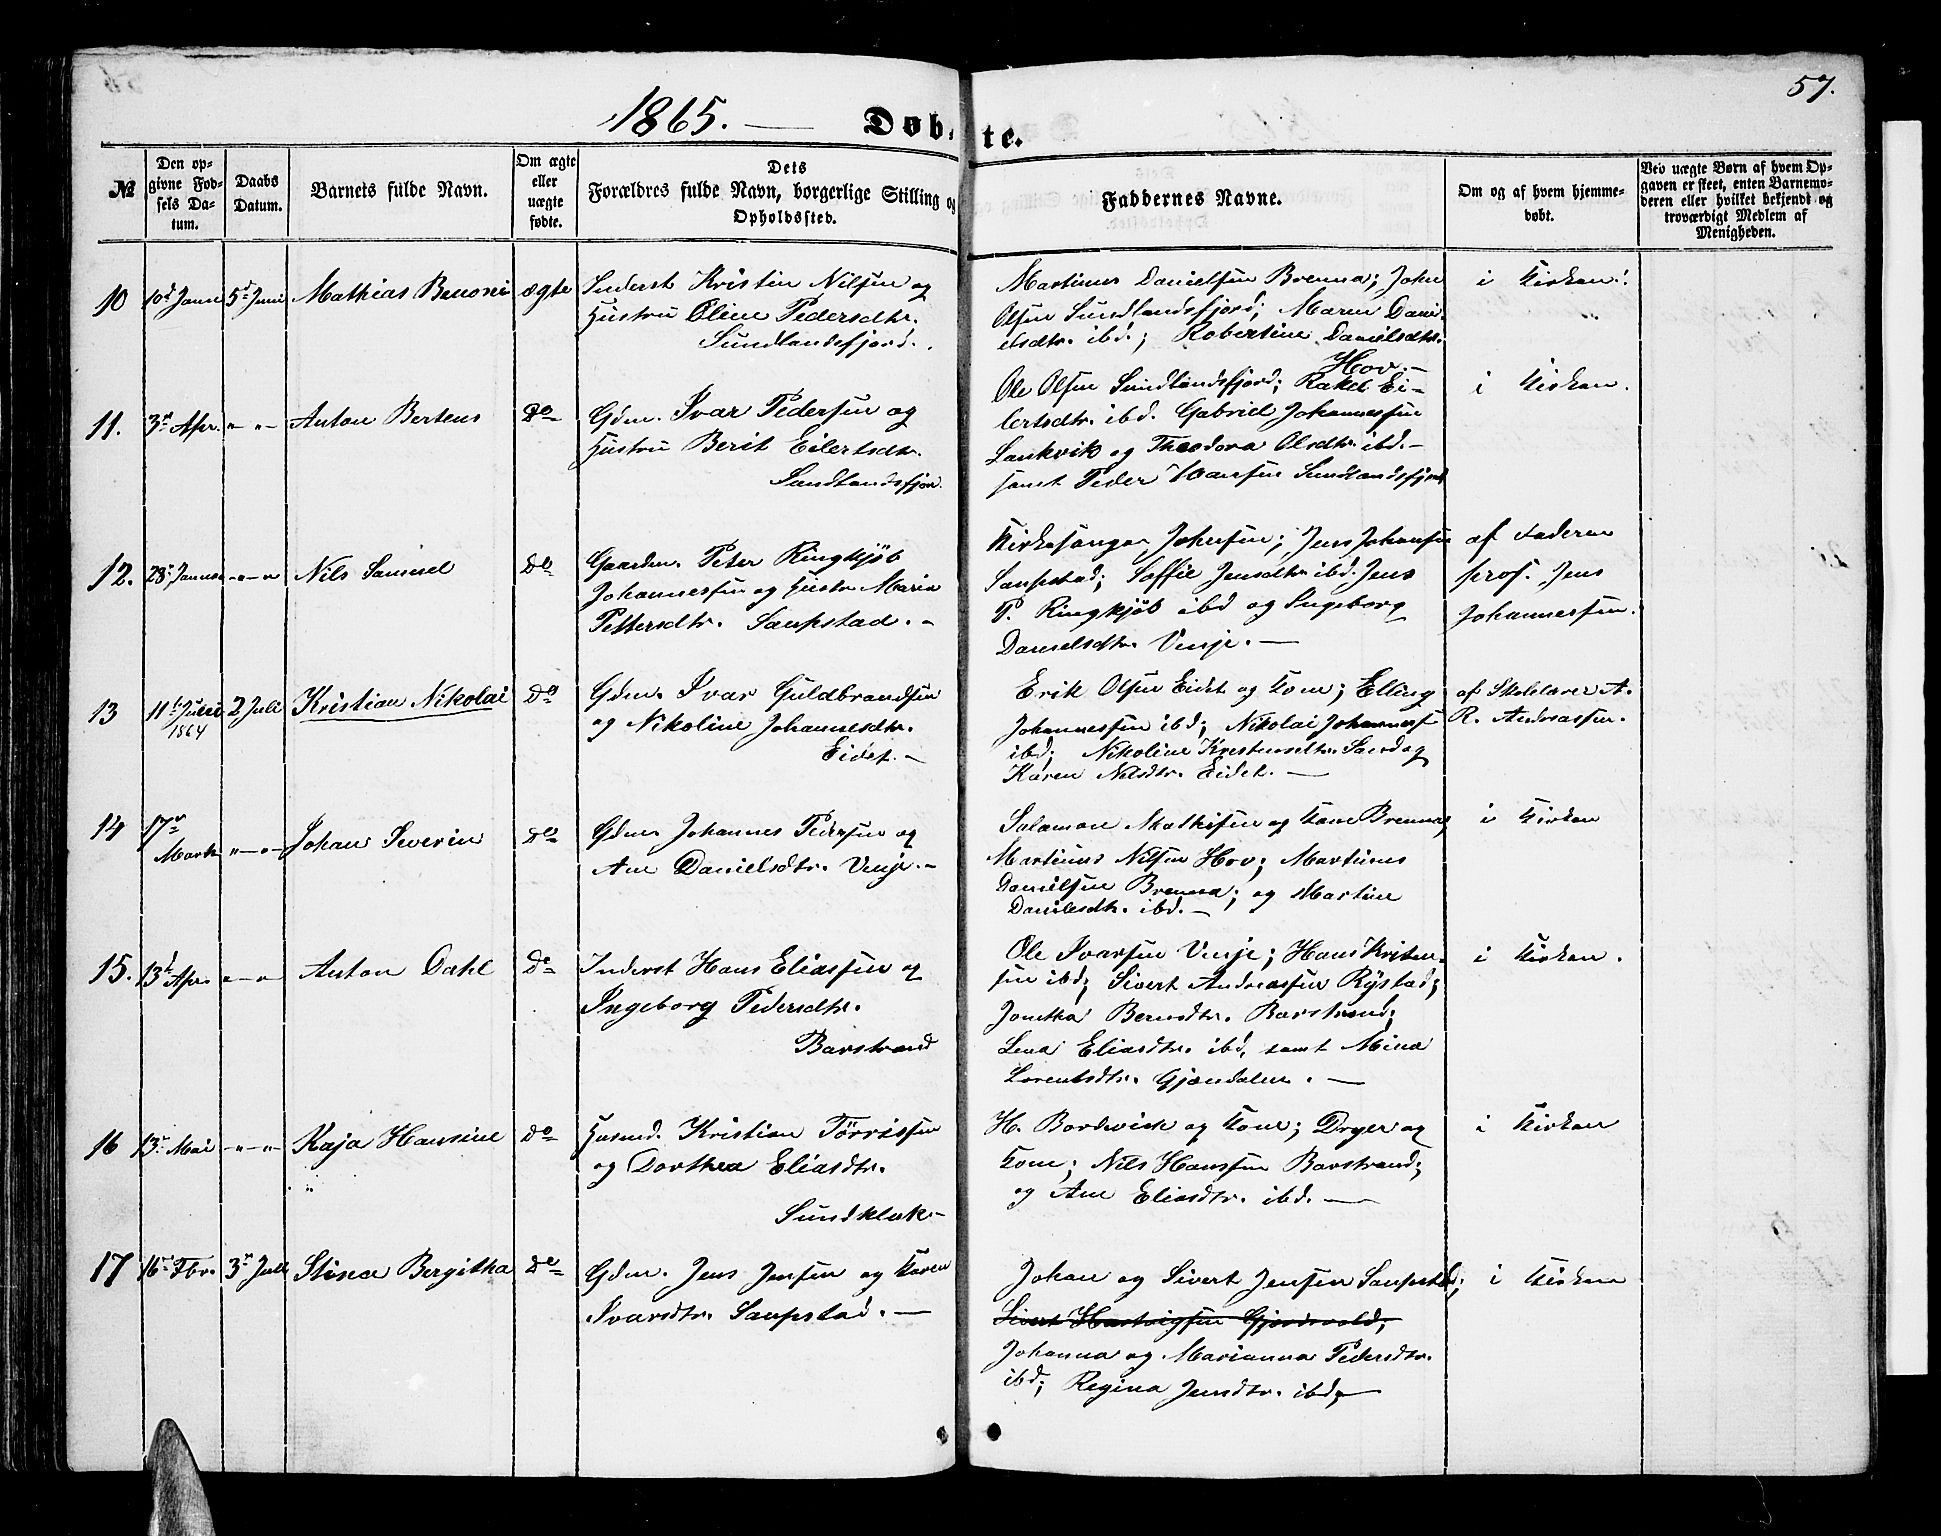 57.
1865. — Døbte.
№
Den opgivne Fødsels Datum.
Daabs Datum.
Barnets fulde Navn.
Om ægte eller uægte fødte.
Dets Forældres fulde Navn, borgerlige Stilling og Opholdssted.
Faddernes Navne.
Om og af hvem hjemmedøbt.
Ved uægte Børn af hvem Opgaven er skeet, enten Barnemoderen eller hvilket bekjendt og troværdigt Medlem af Menigheden.
10 10d Janu 5d Juni Mathias Benoni ægte
Inderst Kristen Nilsen og
Hustru Oline Pedersdtr.
Sundlandsfjord.
Martinus Danielsen Brenna; John
Olsen Sundlandsfjord; Maren Dani-
elsdtr. ibd.; Robertine Danielsdtr.
Hov. —
i Kirken.
11. 3d Apr. " — " — Anton Berteus Do
Gdm. Ivar Pedersen og
Hustru Berit Eilertsdtr.
Sundlandsfjor.
Ole Olsen Sundlandsfjord; Rakel Ei-
lertsdtr. ibd. Gabriel Johannessen
Laukvik og Theodora Olsdtr. ibd. —
samt Peder Ivarsen Sundlandsfjord
i Kirken.
12. 28d Januar " — " — " Nils Samuel Do
Gaardm. Peter Ringkjøb
Johannessen og Hustr. Maria
Pettersdtr. Saupstad. —
Kirkesanger Johnsen; Jens Johansen
Saupstad; Soffie Jensdtr. ibd. Jens
P. Ringkjøb ibd og Ingeborg
Danielsdtr. Vinje. —
af Faderen
prof. Jens
Johannessen.
13 11t Juli 1864 2 Juli Kristian Nikolai Do
Gdm. Ivar Guldbrandsen
og Nikoline Johannesdtr.
Eidet. —
Erik Olsen Eidet og Kone; Elling
Johannessen ibd; Nikolai Johannessen
ibd; Nikoline Kristensdtr. Sand og
Karen Nilsdtr. Eidet. —
af Skolelærer A.
R. Andreassen.
14 17d Marts " — " — Johan Severin Do
Gdm. Johannes Pedersen og
Ane Danielsdtr. Vinje. —
Salamon Mathisen og Kone Brenna;
Martinus Nilsen Hov; Martinus
Danielsen Brenna; og Martine
Danielsdtr. ibd. —
i Kirken
15. 13d Apr. " — " Anton Dahl Do
Inderst Hans Eliassen og
Ingeborg Pedersdtr.
Barstrand
Ole Ivarsen Vinje; Hans Kristen-
sen ibd; Sivert Andreassen Rystad;
Jonetha Berntsdtr. Barstrand;
Lena Eliasdtr. ibd, samt Mina
Lorentsdtr. Gjøndalen. —
i Kirken.
16 13d Mai " — " — " Kaja Hansine Do
Husmd. Kristian Tørrissen
og Dorthea Eliasdtr.
Sundklak. —
H. Bordevick og Kone; Dryer og
Kone; Nils Hanssen Barstrand;
og Ane Eliasdtr. ibd. —
i Kirken
17 16d Fbr. 3d Juli Stina Bergitha Do
Gdm. Jens Jensen og Karen
Ivarsdtr. Saupstad. —
Johan og Sivert Jensen Saupstad;
Sivert Hartvigsen Gjerdsvold;
Johanna og Marianna Pedersdtr.
ibd; Regina Jensdtr. ibd; —
i Kirken